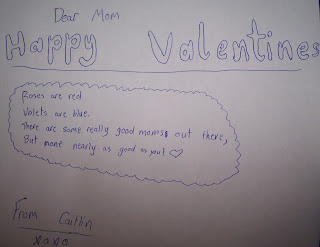 Dear Mom
Happy Valentines
Roses are red
Valets are blue.
There are some really good moms out there,
But none nearly as good as you! ♡
From Caitlin
xoxo